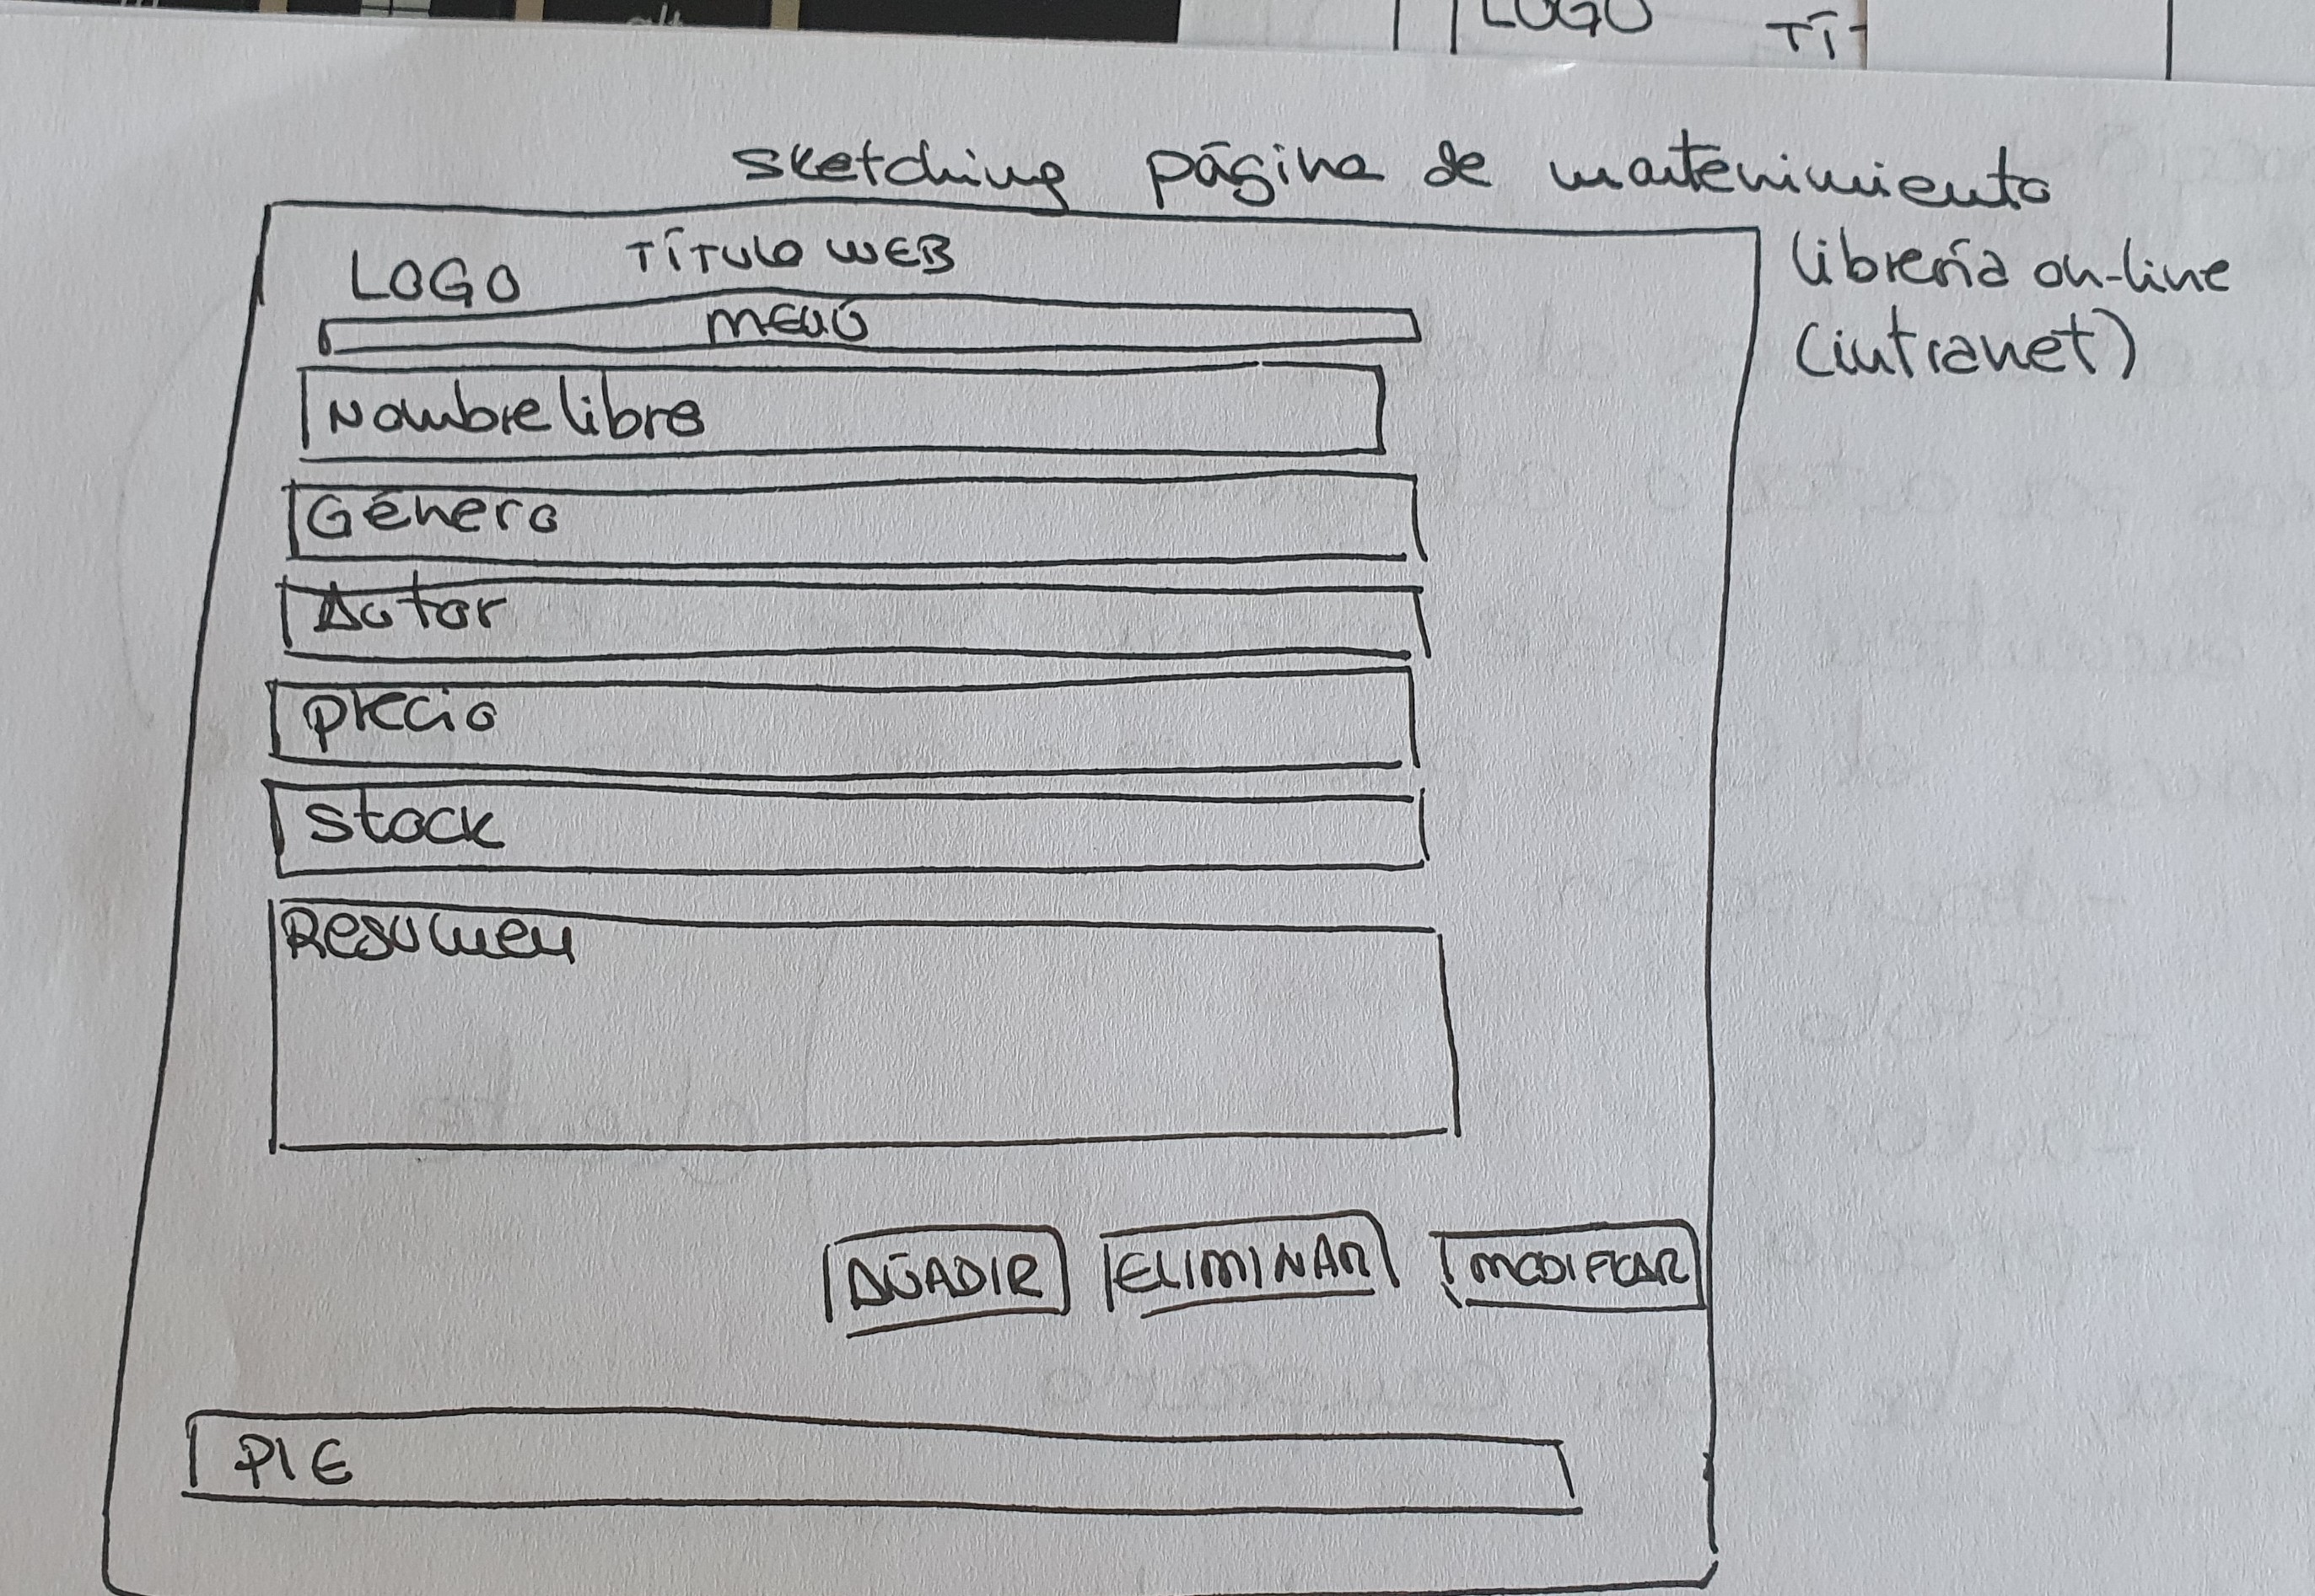 LOGO TÍT
sketching página de mantenimiento
librería on-line
(intranet)
LOGO TÍTULO WEB
MENÚ
Nombre libro
Género
Autor
precio
stock
Resumen
AÑADIR ELIMINAR MODIFICAR
PIE